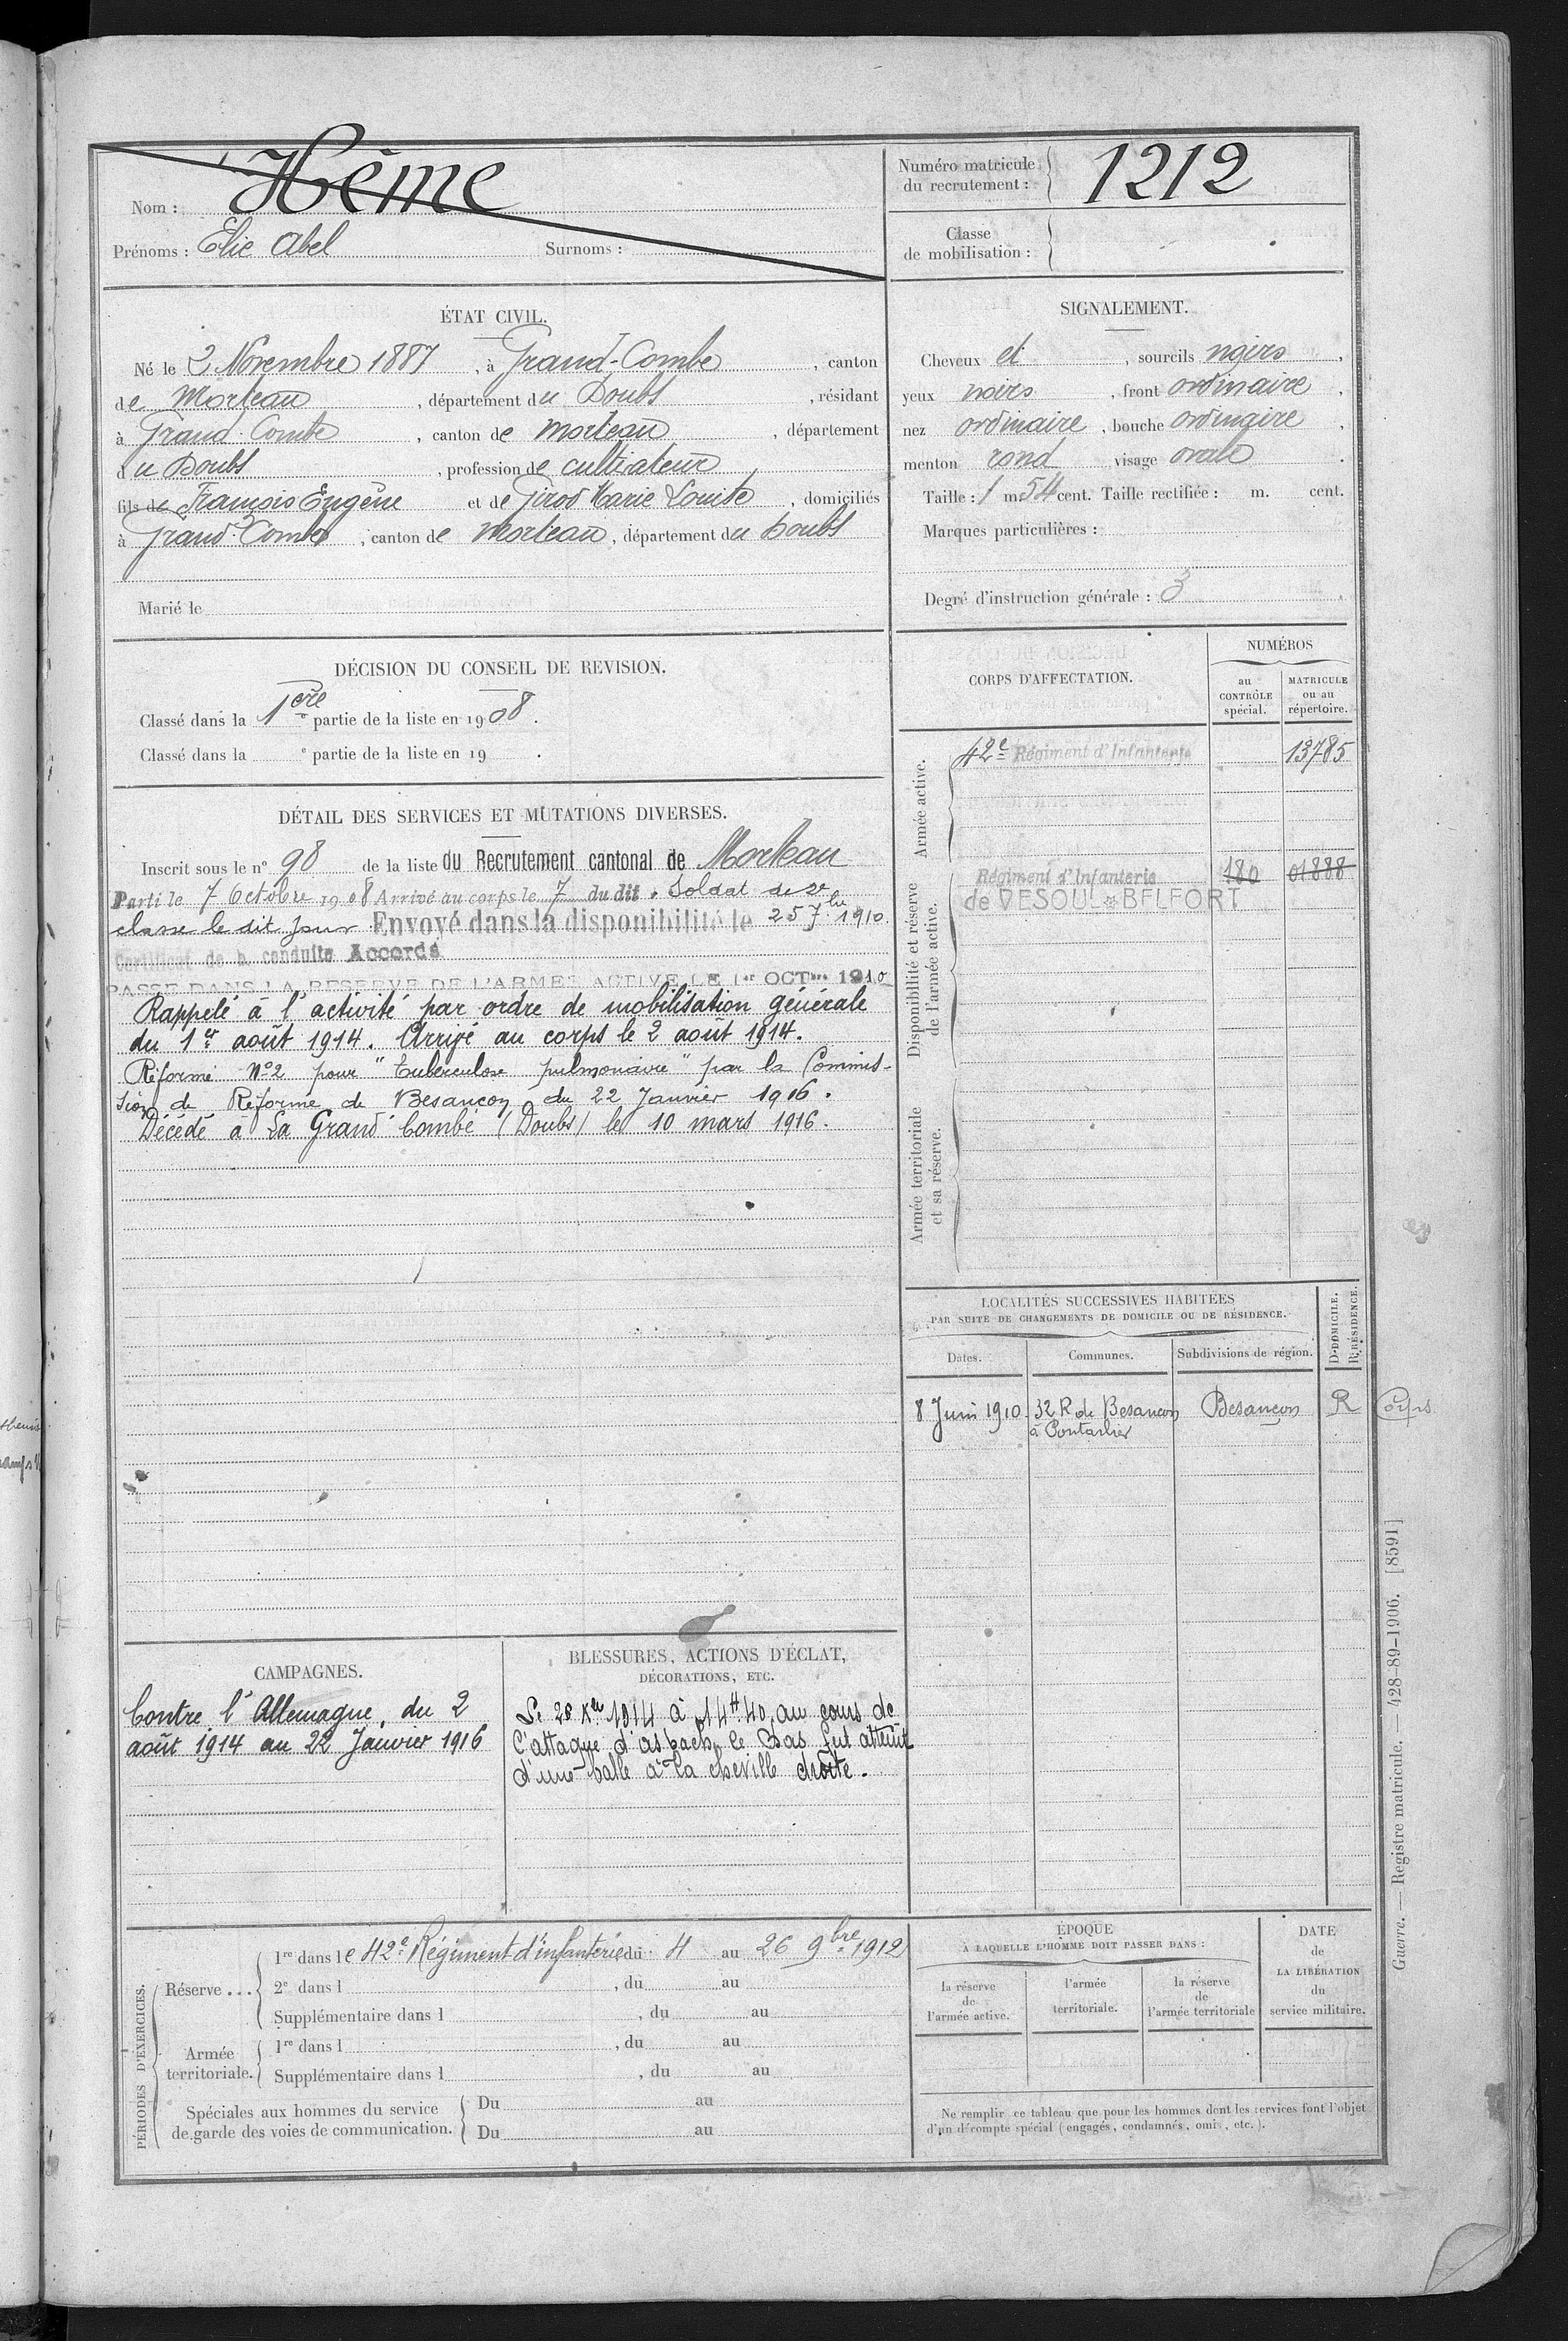 Nom : Hême
Prénoms : Elie Abel Surnoms :
Numéro matricule du recrutement : 1212
Classe de mobilisation :
ÉTAT CIVIL.
Né le 2 Novembre 1887, à Grand-Combe, canton
de Morteau, département du Doubs, résidant
à Grand-Combe, canton de Morteau, département
du Doubs, profession de cultivateur
fils de François Eugène et de Girod Marie Louise, domiciliés
à Grand-Combe, canton de Morteau, département du Doubs
Marié le
SIGNALEMENT.
Cheveux et, sourcils noirs,
yeux noirs, front ordinaire,
nez ordinaire, bouche ordinaire,
menton rond visage ovale.
Taille : 1 m 54 cent. Taille rectifiée : m. cent.
Marques particulières :
Degré d'instruction générale : 3
DÉCISION DU CONSEIL DE REVISION.
Classé dans la 1ère partie de la liste en 1908.
Classé dans la e partie de la liste en 19 .
DÉTAIL DES SERVICES ET MUTATIONS DIVERSES.
Inscrit sous le n° 98 de la liste du Recrutement cantonal de Morteau
Parti le 7 Octobre 1908 Arrivé au corps le 7 du dit. Soldat de 2e
classe le dit jour Envoyé dans la disponibilité le 25 7bre 1910.
Certificat de b. conduite Accordé
PASSÉ DANS LA RESERVE DE L'ARMEE ACTIVE LE 1er OCTbre 1910
Rappelé à l'activité par ordre de mobilisation générale
du 1er août 1914. Arrivé au corps le 2 août 1914.
Réformé N°2 pour "Tuberculose pulmonaire" par la Commis-
sion de Réforme de Besançon du 22 Janvier 1916.
Décédé à La Grand'Combe (Doubs) le 10 mars 1916.
CORPS D'AFFECTATION.
NUMÉROS
au CONTRÔLE spécial.
MATRICULE ou au répertoire.
Armée active.
42e Régiment d'Infanterie 13785
Disponibilité et réserve de l'armée active.
Régiment d'Infanterie 180 01888
de VESOUL BELFORT
Armée territoriale et sa réserve.
LOCALITÉS SUCCESSIVES HABITÉES
PAR SUITE DE CHANGEMENTS DE DOMICILE OU DE RÉSIDENCE.
Dates. Communes. Subdivisions de région. D. DOMICILE. R. RÉSIDENCE.
8 Juin 1910. 32 R de Besançon Besançon R Corps
à Pontarlier
CAMPAGNES.
Contre l'Allemagne, du 2
août 1914 au 22 Janvier 1916
BLESSURES, ACTIONS D'ÉCLAT,
DÉCORATIONS, ETC.
Le 28 Xbre 1914 à 14H40, au cours de
l'attaque d'Asbach le Bas fut atteint
d'une balle à la cheville droite.
PÉRIODES D'EXERCICES.
Réserve ...
1re dans le 42e Régiment d'infanterie du 4 au 26 9bre 1912
2e dans l , du au
Supplémentaire dans l , du au
Armée territoriale.
1re dans l , du au
Supplémentaire dans l , du au
Spéciales aux hommes du service
de garde des voies de communication.
Du au
Du au
ÉPOQUE
À LAQUELLE L'HOMME DOIT PASSER DANS :
la réserve de l'armée active.
l'armée territoriale.
la réserve de l'armée territoriale
DATE de LA LIBÉRATION du service militaire.
Ne remplir ce tableau que pour les hommes dont les services font l'objet
d'un décompte spécial (engagés, condamnés, omis, etc.).
Guerre. — Registre matricule. — 428-89-1906. [8591]